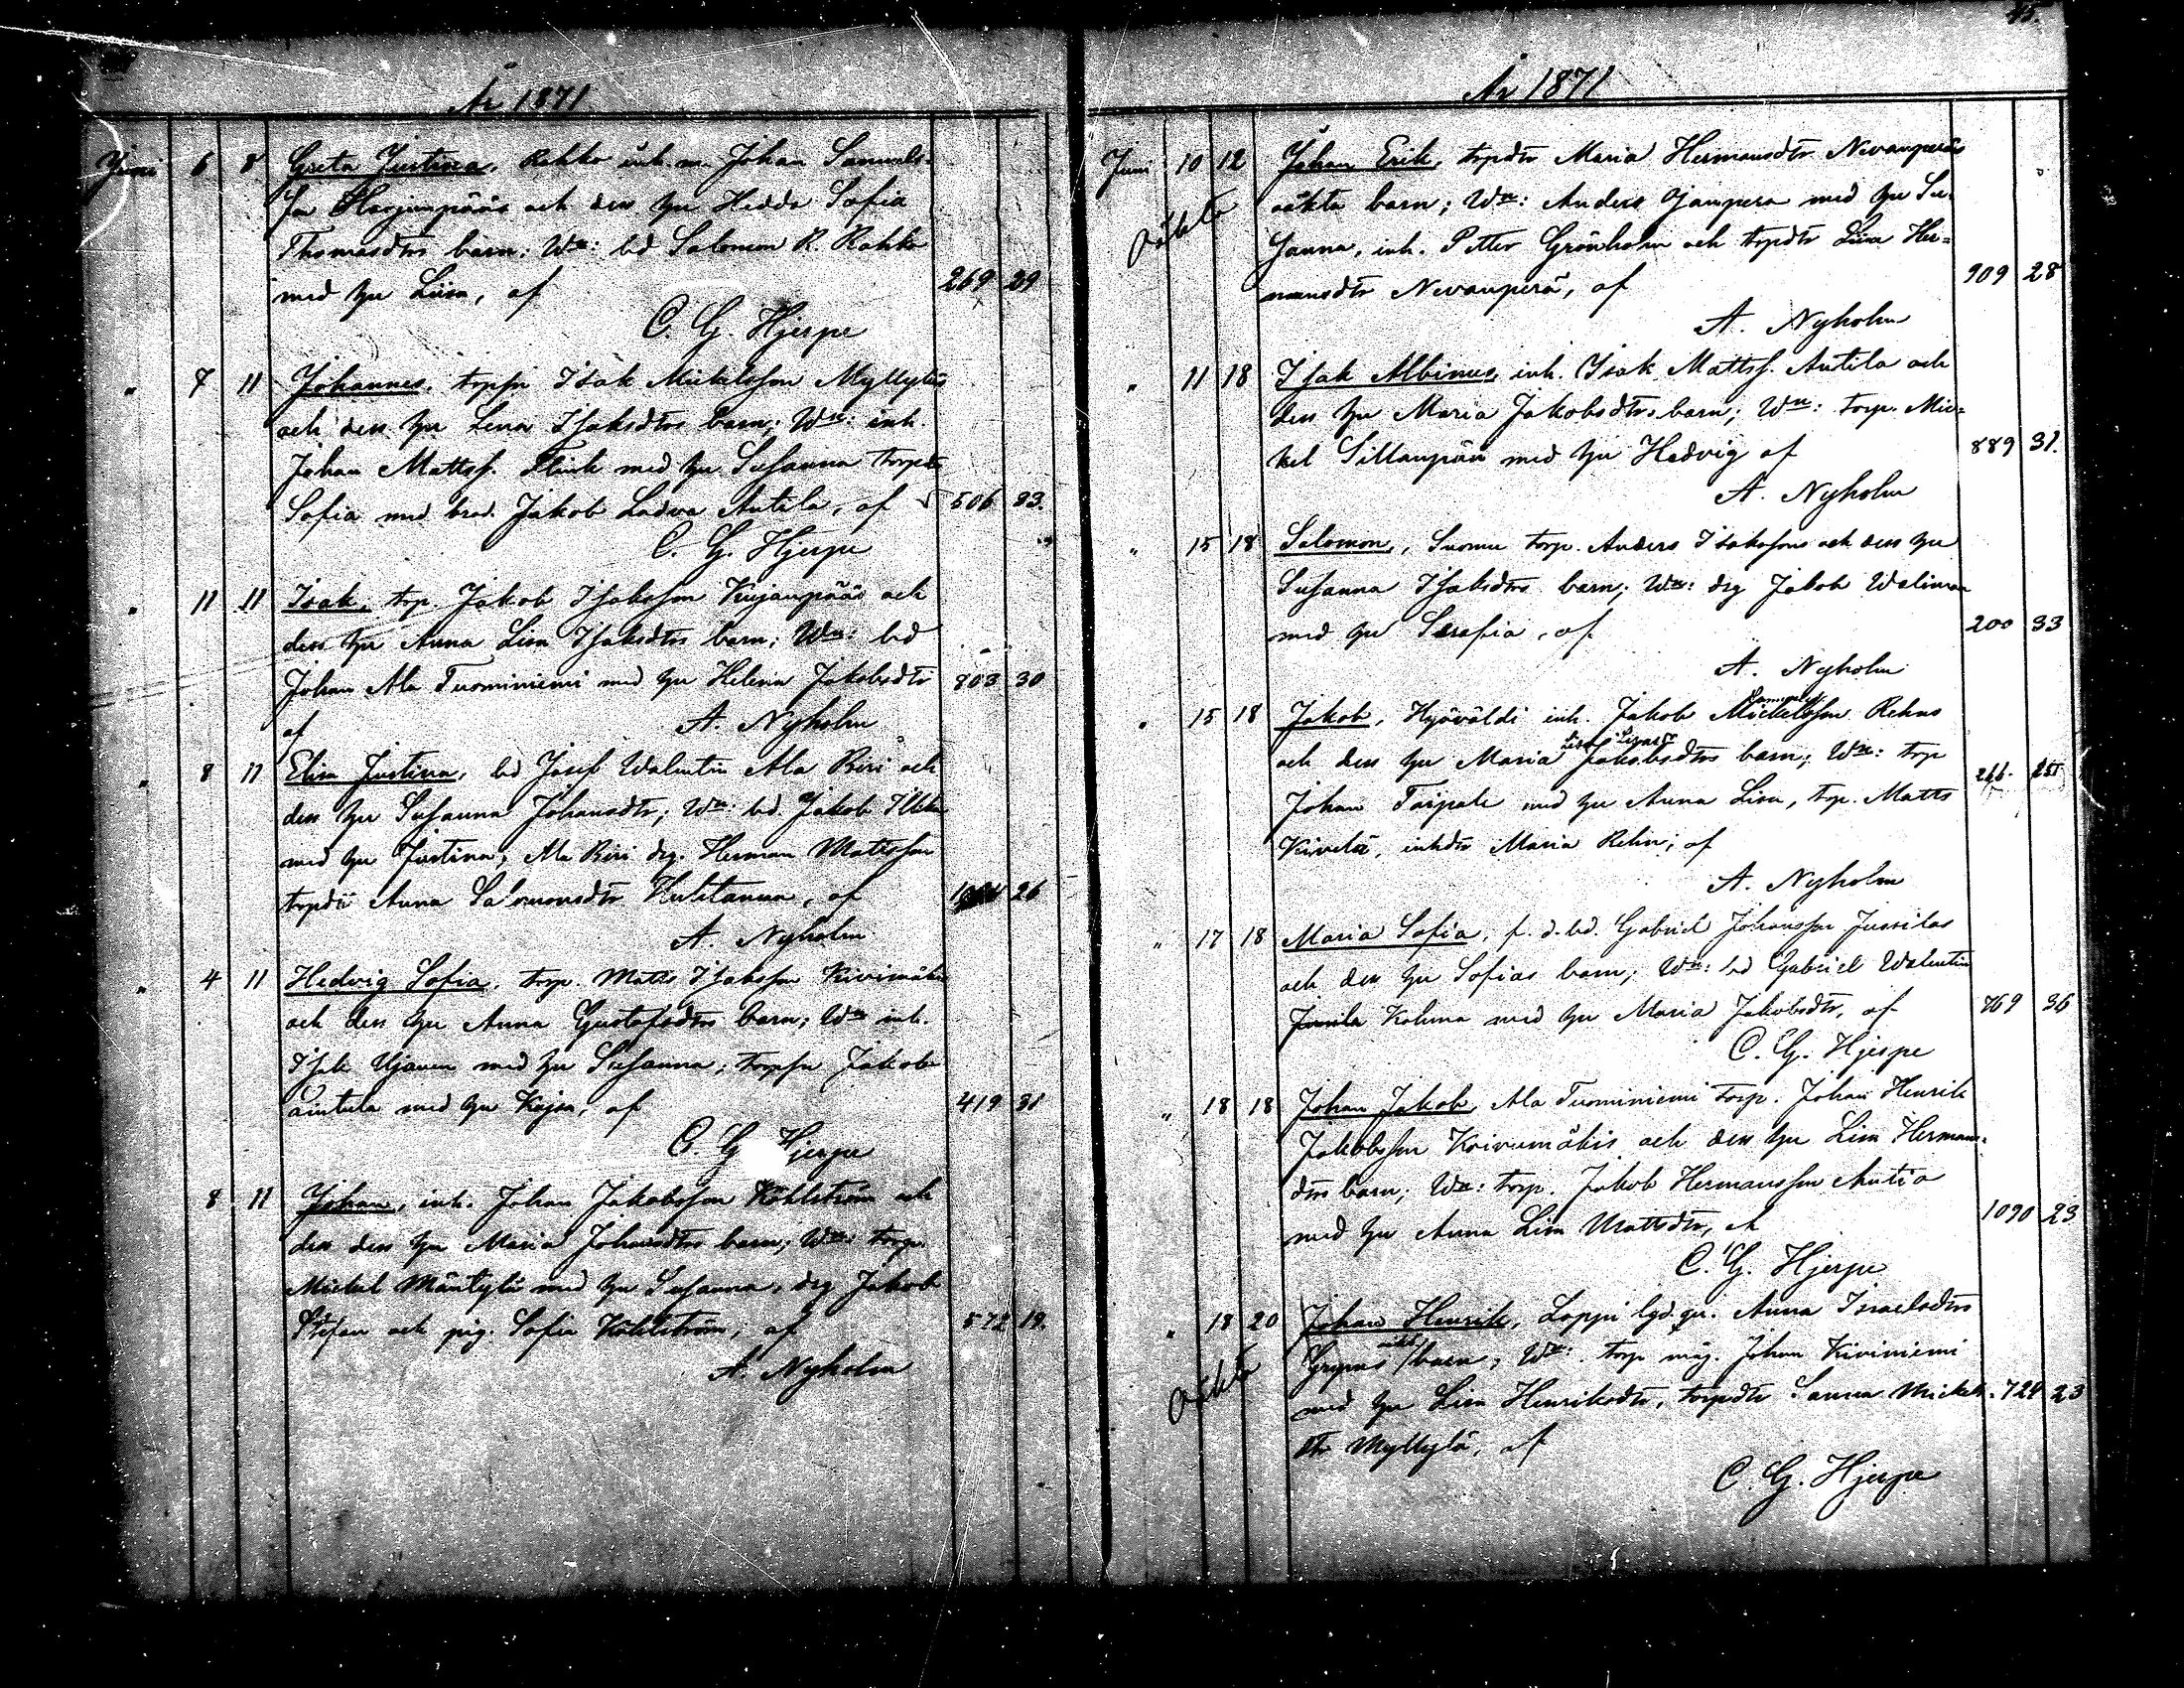 År 1871
Juni 6 8 Greta Justina, Rahko inh. m. Johan Samuels-
son Harjunpääs och dess hu Hedda Sofia
Thomasdtrs barn; Wn: bd Salomon R. Rahko
med hu Liisa, af 269 29
C. G. Hjerpe
" 7 11 Johannes, torpsn Isak Mickelsson Myllyläs
och dess hu Lena Isaksdtrs barn; Wn: inh.
Johan Mattss. Flink med hu Susanna torpdtr
Sofia med bror Jakob Ladva Antila, af 506 33.
C. G. Hjerpe
" 11 11 Isak, torp. Jakob Isaksson Kujanpääs och
dess hu Anna Lisa Isaksdtrs barn; Wn: bd
Johan Ala Tuominiemi med hu Helena Jakobsdtr 803 30
af A. Nyholm
" 8 11 Elisa Justina, bd Josef Walentin Ala Riri och
dess hu Susanna Johansdtr; Wn: bd. Jakob
med hu Justina, Ala Riri drg. Herman Mattsson
torpdtr Anna Salomonsdtr Huhtanen, af 26
A. Nyholm
" 4 11 Hedvig Sofia, torp. Matts Isaksson Kivimäkis
och dess hu Anna Gustafsdtrs barn; Wn inh.
Isak Ujanen med hu Susanna; torpsn Jakob
äintula med hu Kajsa, af 419 31
C. G. Hjerpe
8 11 Johan, inh. Johan Jakobsson Kohlström och
dess dess hu Maria Johansdtrs barn; Wn: torp.
Mickel Mäntylä med hu Susanna, drg Jakob
Stefan och pig. Sofia Kohlström, af 572 19.
A. Nyholm
45.
År 1871
Juni 10 12 Johan Erik, torpdtr Maria Hermansdtr Nevanperäs
Oäkta oäkta barn; Wn: Anders Yanpera med hu Su-
sanna, inh. Petter Grönholm och torpdtr Liisa Her-
mansdtr Nevanperä, af 909 28
A. Nyholm
" 11 18 Isak Albinus, inh. Isak Mattss. Antila och
dess hu Maria Jakobsdtrs barn; Wn: torp. Mic-
kel Sillanpää med hu Hedvig af 889 31.
A. Nyholm
" 15 18 Salomon, Suomu torp. Anders Isaksons och dess hu
Susanna Isaksdtrs barn; Wn: drg Jakob Waliman
med hu Serafia, af 200 33
A. Nyholm
" 15 18 Jakob, Hyövälti inh. Jakob Mickelsson Rehns
och dess hu Maria Jakobsdtrs barn; Wn: torp
Johan Taipale med hu Anna Lisa, torp. Matts
Kivelä, inhdtr Maria Rehn; af
A. Nyholm
" 17 18 Maria Sofia, f. d. bd. Gabriel Johansson Jussilas
och dess hu Sofias barn; Wn: bd Gabriel Walentin
Jussila Kohma med hu Maria Jakobsdtr, af 769 36
C. G. Hjerpe
" 18 18 Johan Jakob, Ala Tuominiemi torp. Johan Henrik
Jakobsson Koivumäkis och dess hu Lisa Hermans-
dtrs barn; Wn: torp. Jakob Hermansson Autio
med hu Anna Lisa Mattsdtr, af 1090 23
C. G. Hjerpe
" 18 20 Johan Henrik, Loppi lgd. qu. Anna Israelsdtrs
Oäkta barn; Wn: torp. måg. Johan Kiviniemi
med hu Lisa Henriksdtr, torpdtr Sanna Mickels- 724 23
dtr Myllylä, af
C. G. Hjerpe